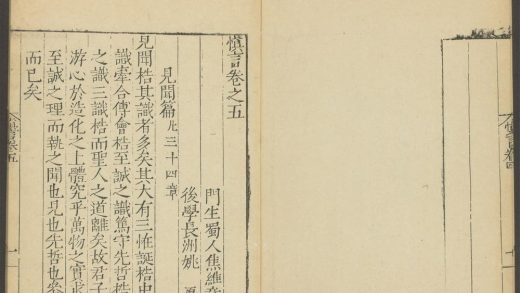 慎言卷之五
門生蜀人焦維
後學長洲姚
見聞篇 凡三十四章
見聞梏其識者多矣其大有三恠誕梏中
識牽合傅會梏至誠之識篤守先哲梏
之識三識梏而聖人之道離矣故君子
游心於造化之上體究乎萬物之實
至誠之理而執之聞也見也先哲也參
而已矣